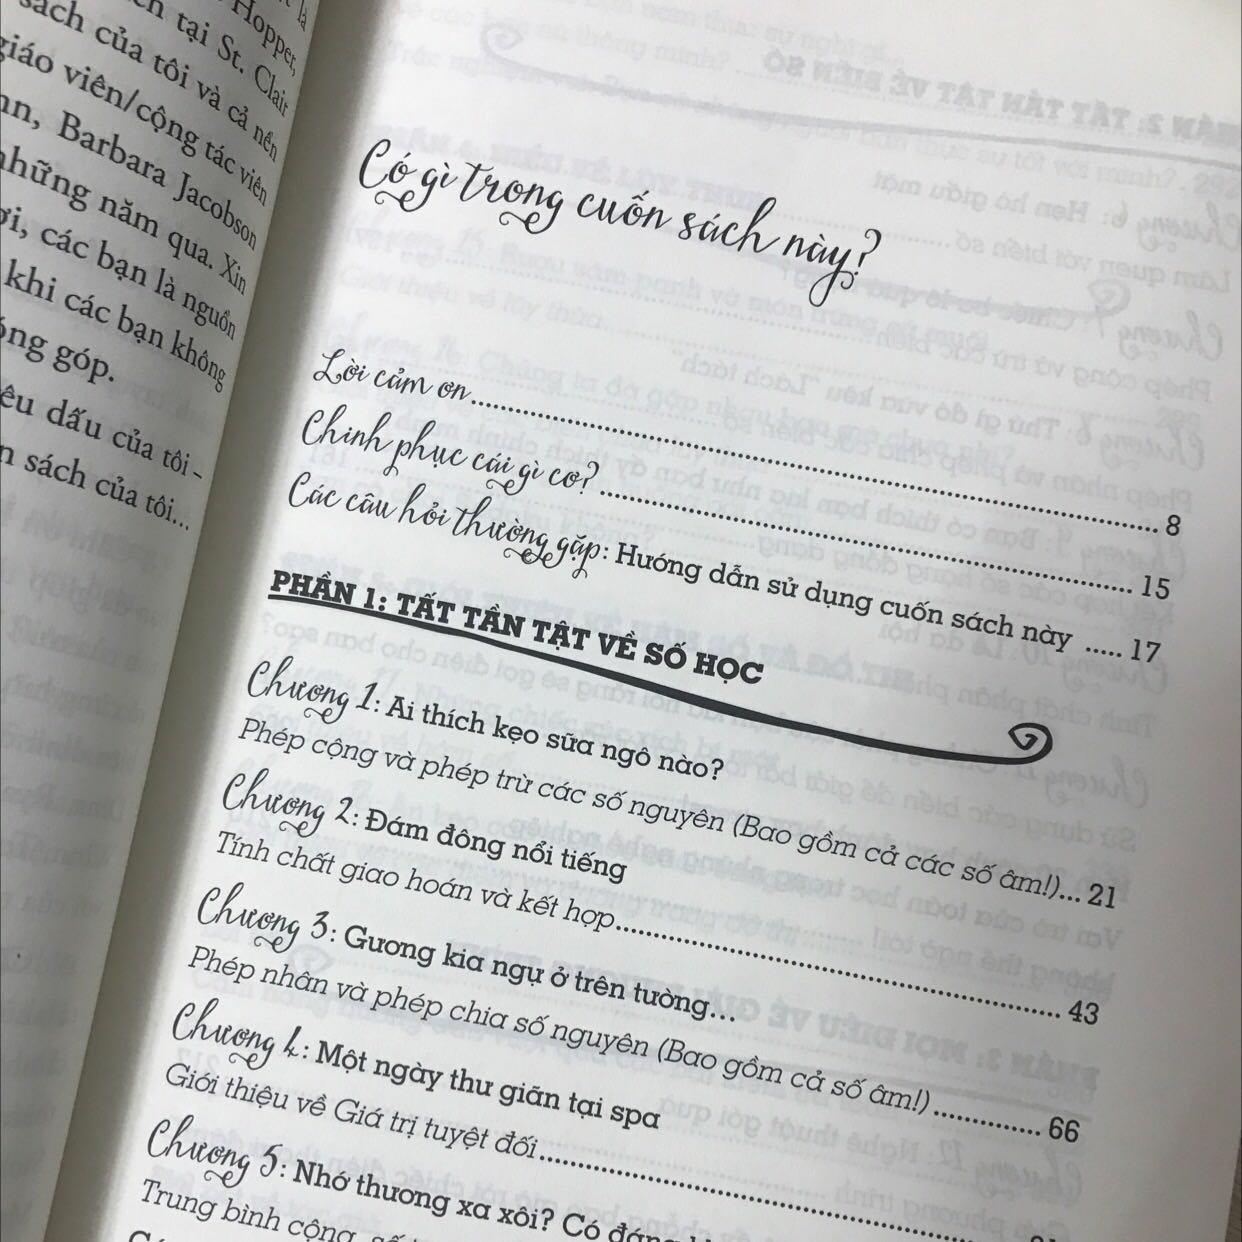 là
Hopper,
ch tại St. Clair
sách của tôi và cả nền
giáo viên/cộng tác viên
Barbara Jacobson
những năm qua. Xin
các bạn là nguồn
khi các bạn không
góp.
dấu của tôi –
sách của tôi...
Có gì trong cuốn sách này?
Lời cảm ơn........ 8
Chinh phục cái gì cơ?........ 15
Các câu hỏi thường gặp: Hướng dẫn sử dụng cuốn sách này ..... 17
PHẦN 1: TẤT TẦN TẬT VỀ SỐ HỌC
Chương 1: Ai thích kẹo sữa ngô nào?
Phép cộng và phép trừ các số nguyên (Bao gồm cả các số âm!)... 21
Chương 2: Đám đông nổi tiếng
Tính chất giao hoán và kết hợp........ 43
Chương 3: Gương kia ngự ở trên tường...
Phép nhân và phép chia số nguyên (Bao gồm cả số âm!)........ 66
Chương 4: Một ngày thư giãn tại spa
Giới thiệu về Giá trị tuyệt đối........
Chương 5: Nhớ thương xa xôi? Có
Trung bình cộng,